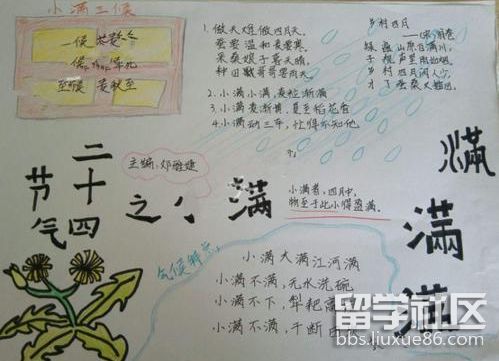 小满三候
一候苦菜
至候 麦秋至
1.做天难做四月天,
蚕要温和麦要寒。
采桑娘子要天晴,
种田哥哥要雨天。
2.小满小满,麦粒渐满
3.小满麦渐黄,夏至稻花香
4.小满动三车,忙得不知他
乡村四月
绿遍山原白满川,
子规声里雨如烟。
乡村四月闲人少,
才了蚕桑又插田。
二十四
节气
之
小
满
满
满
满
主编:邓
小满者,四月中,
物至于此小得盈满。
气候特点:
小满大满江河满
小满不满,无水洗碗
小满不下,犁耙高
小满不满,干断
留学社区
bbs.liuxue86.com